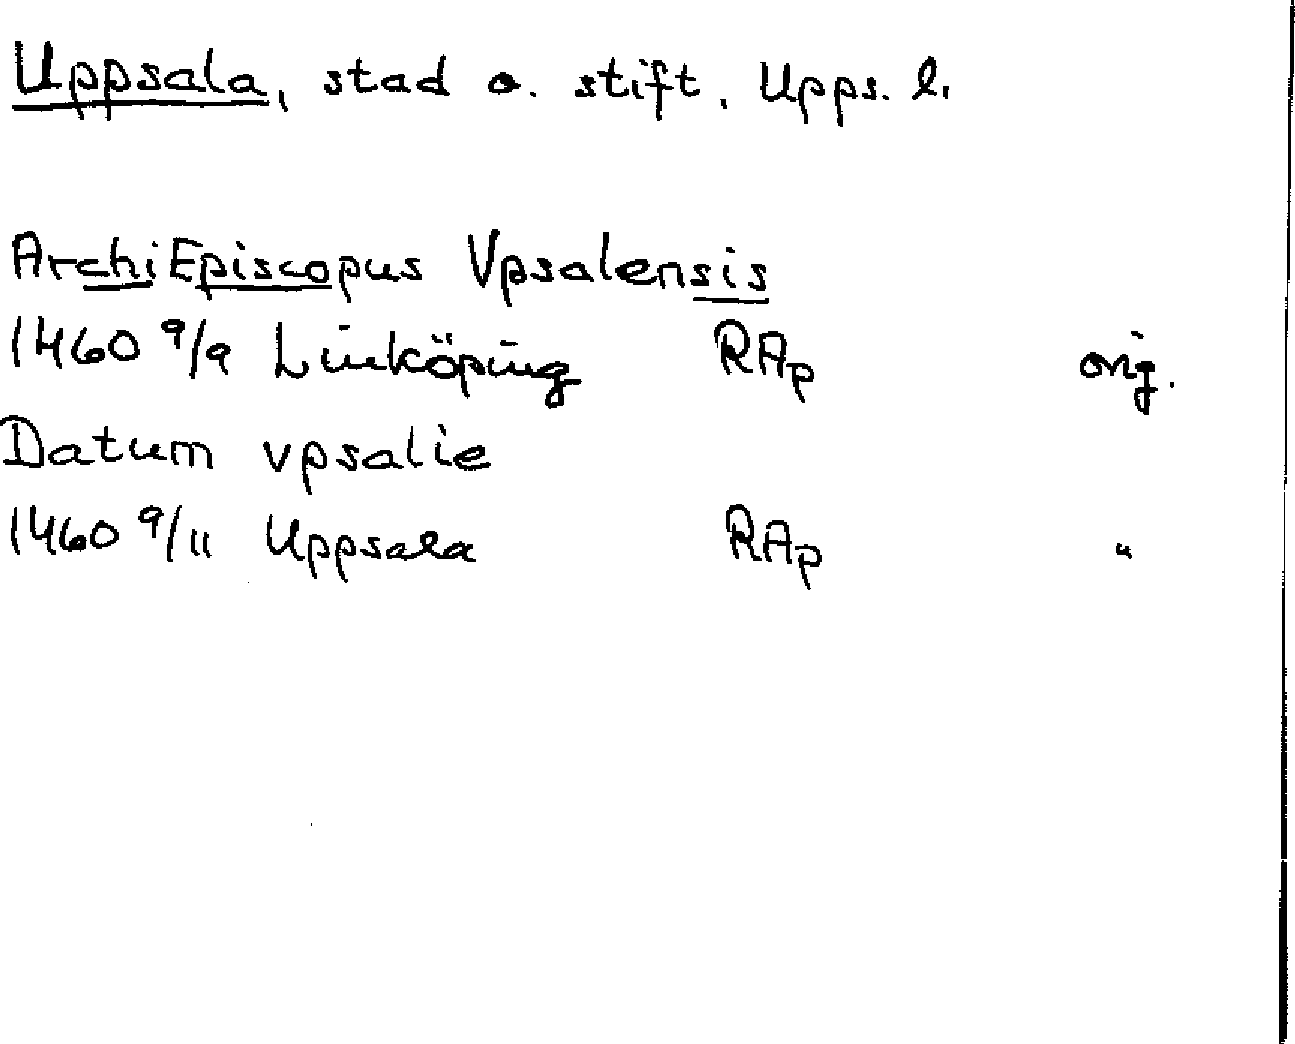 Uppsala, stad o. stift, Upps. l.
ArchiEpiscopus Vpsalensis
1460 9/9 Linköping RAp orig.
Datum vpsalie
1460 9/11 Uppsala RAp "